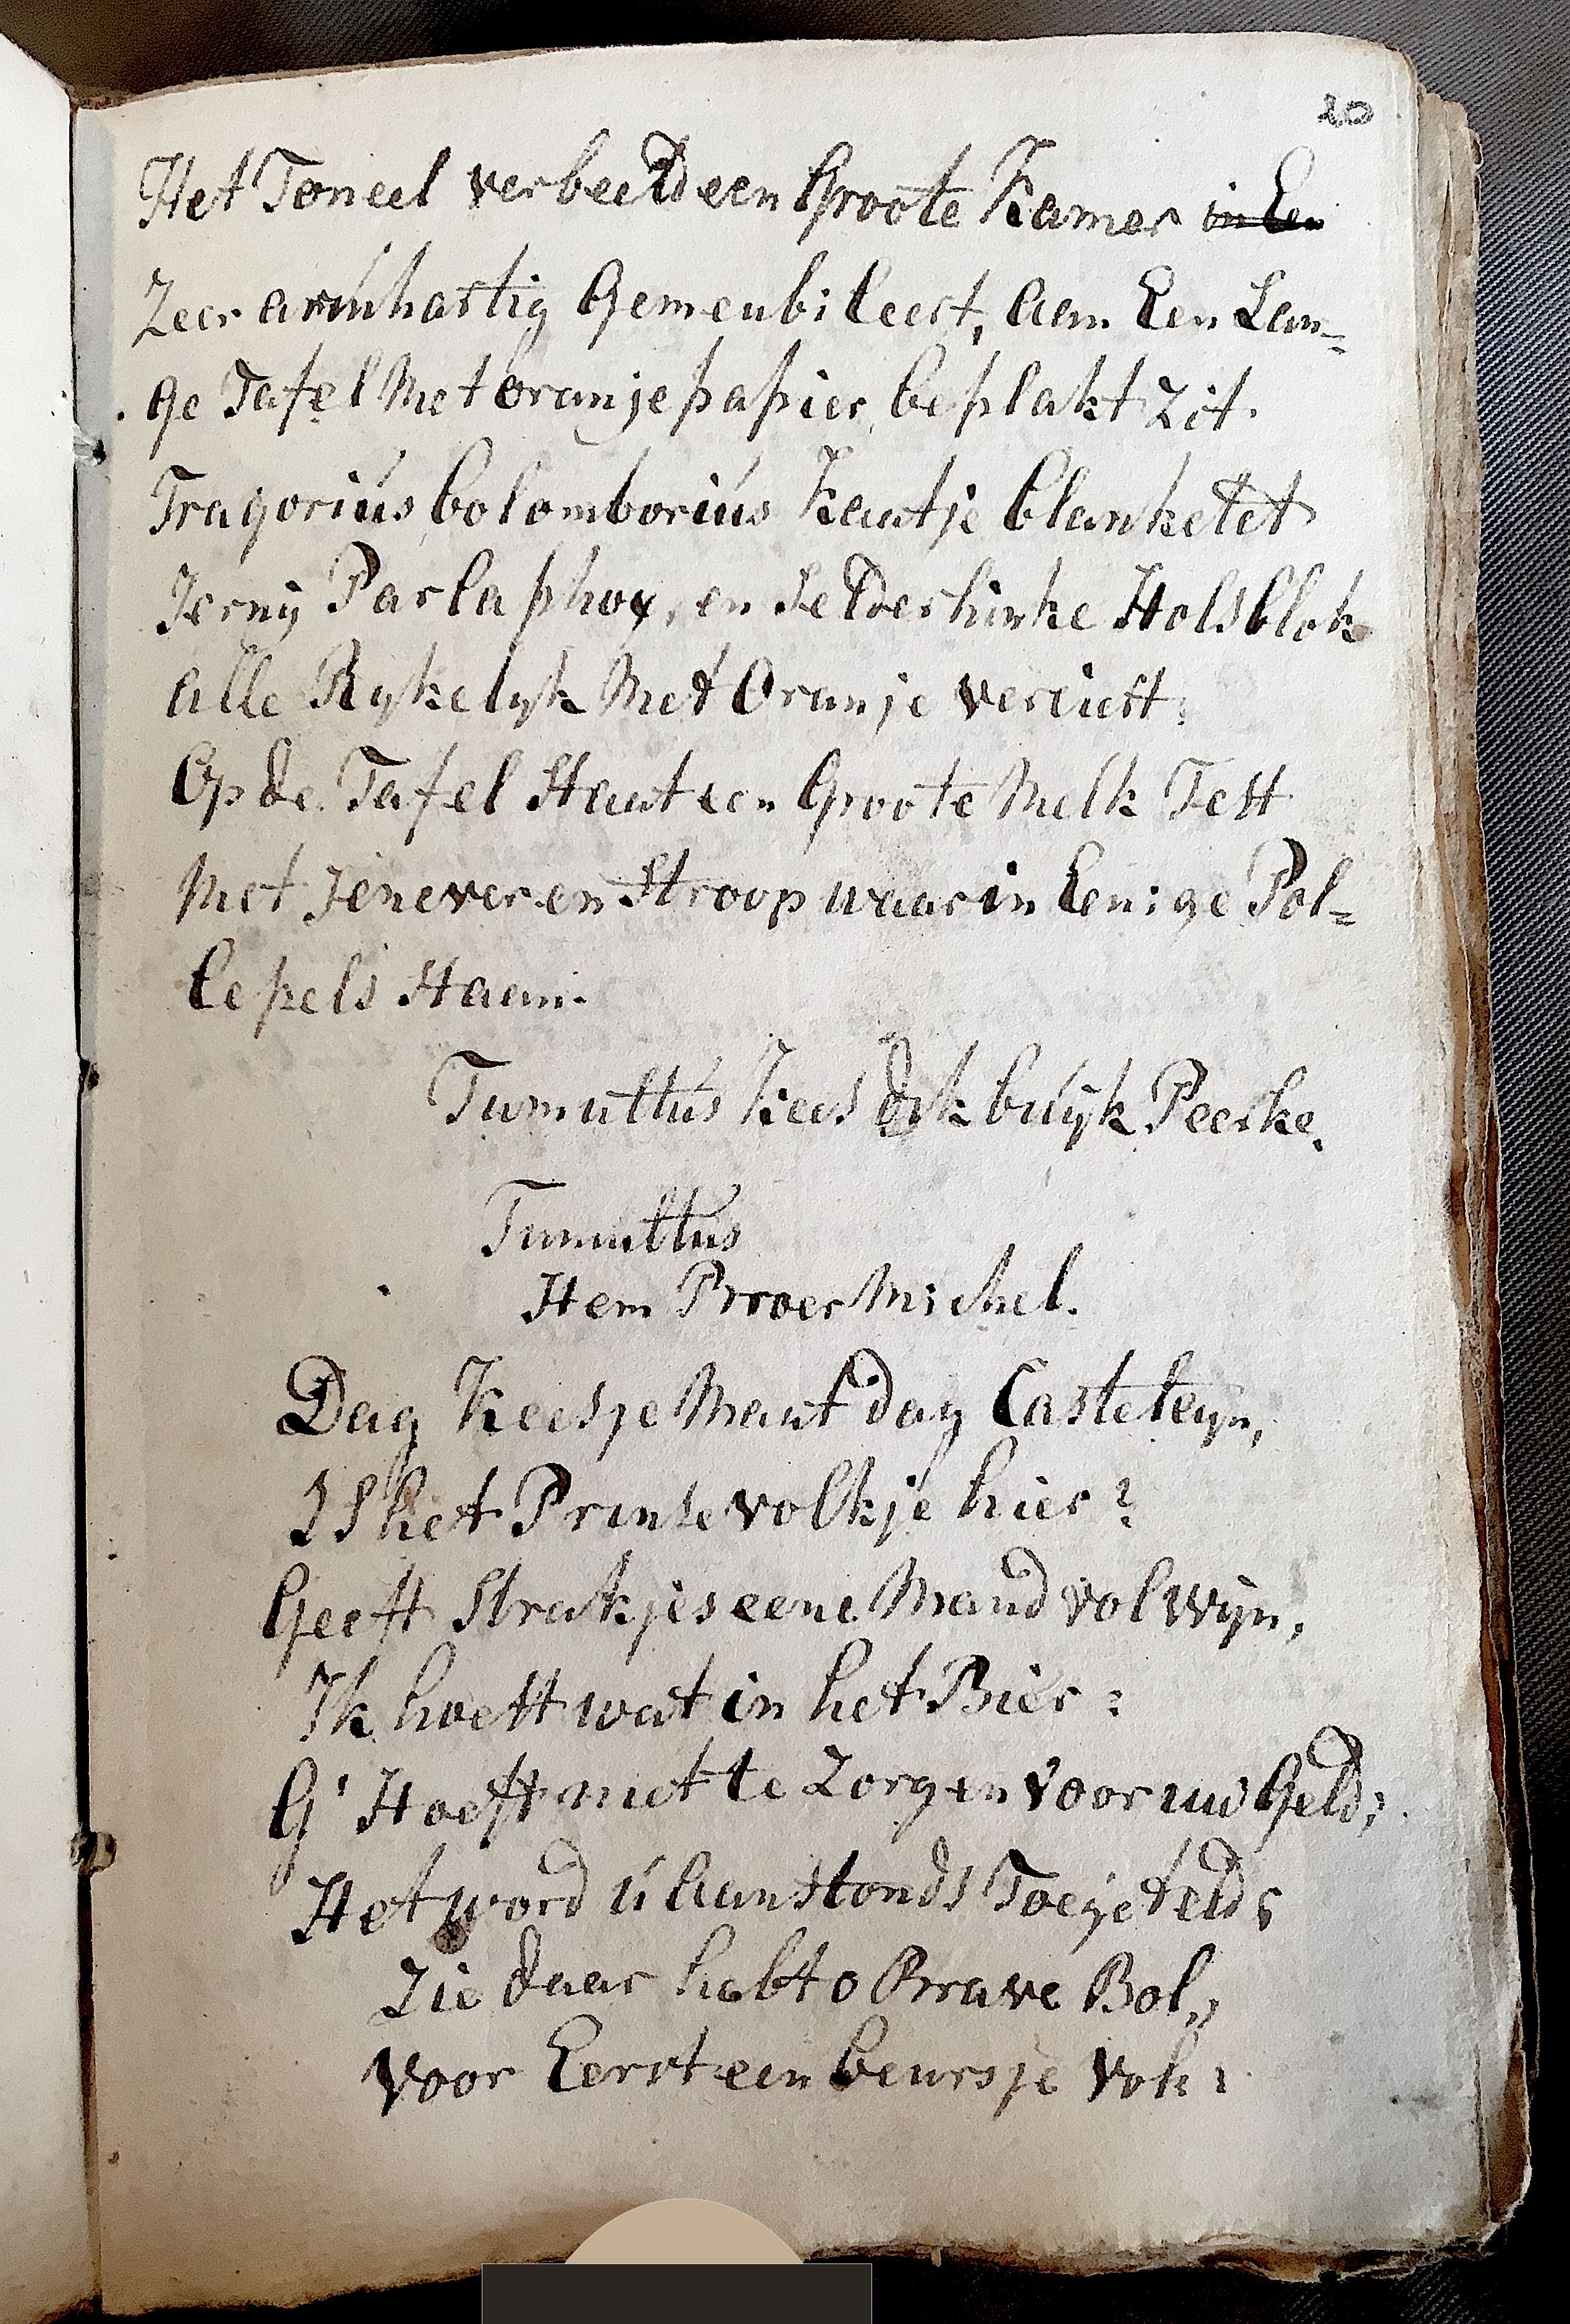 20
Het Toneel verbeeld een Groote Kamer in Een
Zeer armhartig Gemeubileert, aan Een Lan=
ge Tafel Met oranje papier beplakt Zit
Tragorius bolomborius Kaatje blanketet
Jerny Parlaphoy, en Selderhinke Holsblok
alle Rykelyk Met Oranje verciert:
Op de Tafel Staat een Groote Melk Test
Met Jenever en Stroop waar in Eenige Pol=
lepels Staan.
Tumultus Kees dik buijk Peerke.
Tumultus
Stem Proer Michel.
Dag Keesje Maat dag Casteleyn,
IS het Prinse volkje hier?
Geeft Strakjes eene Mand vol Wyn,
Ik hoeft wat in het Bier:
G' Hoeft niet te Zorgen voor uw Geld;
Het word ú aanstonds Toegeteld;
Zie daar habt o Brave Bol,,
voor Eerst een beursje vol: